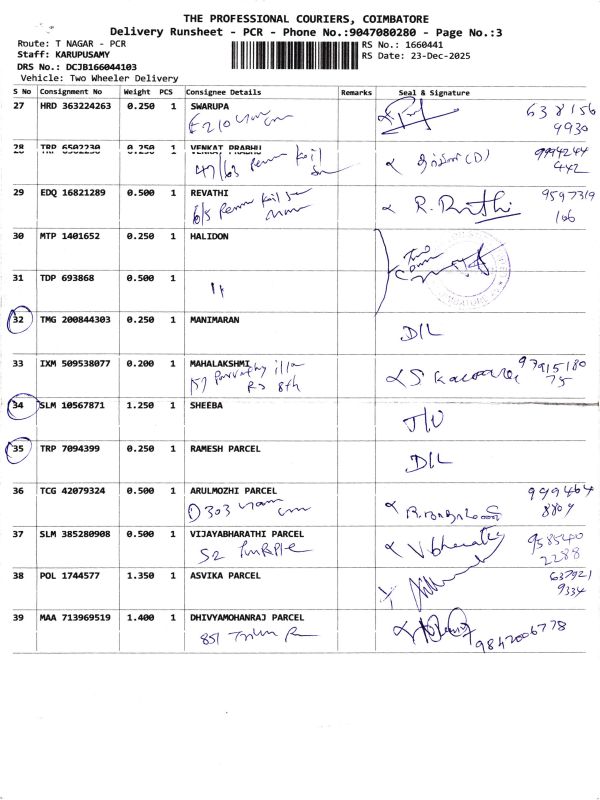 THE PROFESSIONAL COURIERS, COIMBATORE
Delivery Runsheet - PCR - Phone No.:9047080280 - Page No.:3
Route: T NAGAR - PCR
RS No.: 1660441
Staff: KARUPUSAMY
RS Date: 23-Dec-2025
DRS No.: DCJB166044103
Vehicle: Two Wheeler Delivery
S No Consignment No Weight PCS Consignee Details Remarks Seal & Signature
27 HRD 363224263 0.250 1 SWARUPA
E210
638156
9930
28 TRP 6502230 0.250 1 VENKAT PRABHU
47/63
9994244
442
29 EDQ 16821289 0.500 1 REVATHI
6/5
9597319
166
30 MTP 1401652 0.250 1 HALIDON
31 TDP 693868 0.500 1
32 TMG 200844303 0.250 1 MANIMARAN
D/L
33 IXM 509538077 0.200 1 MAHALAKSHMI
RS 8th
97915180
75
34 SLM 10567871 1.250 1 SHEEBA
35 TRP 7094399 0.250 1 RAMESH PARCEL
D/L
36 TCG 42079324 0.500 1 ARULMOZHI PARCEL
D303
999464
8809
37 SLM 385280908 0.500 1 VIJAYABHARATHI PARCEL
S2 PURPle
Vbharathi
958540
2288
38 POL 1744577 1.350 1 ASVIKA PARCEL
637921
9334
39 MAA 713969519 1.400 1 DHIVYAMOHANRAJ PARCEL
851
9842006778